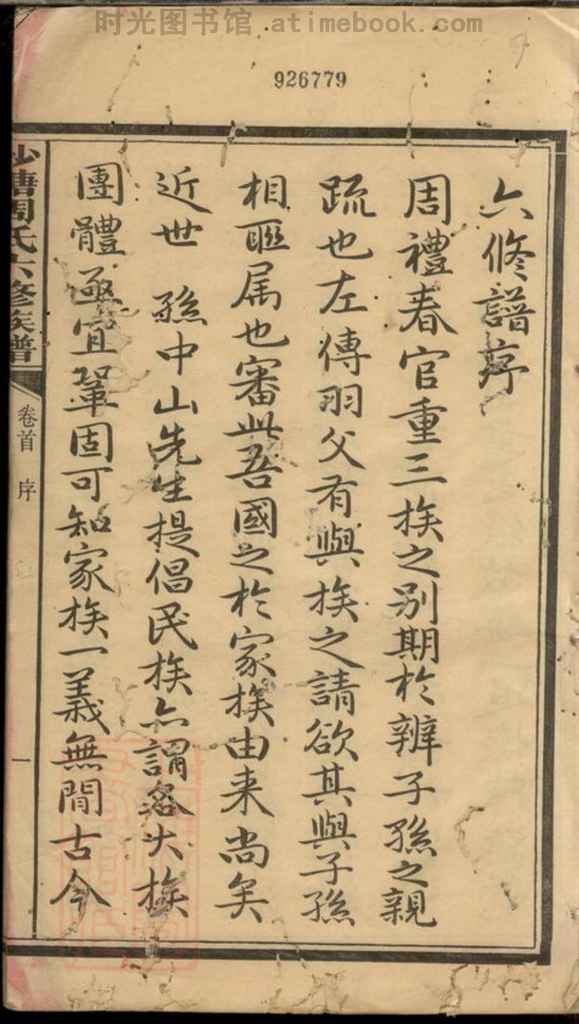 时光图书馆 atimebook.com
926779
六修譜序
周禮春官重三族之别期於辨子孫之親
疏也左傳羽父有與族之請欲其與子孫
相聯属也審此吾國之於家族由来尚矣
近世 孫中山先生提倡民族亦謂各大族
團體亟宜鞏固可知家族一義無間古今
塘周氏六修族譜
卷首 序
一